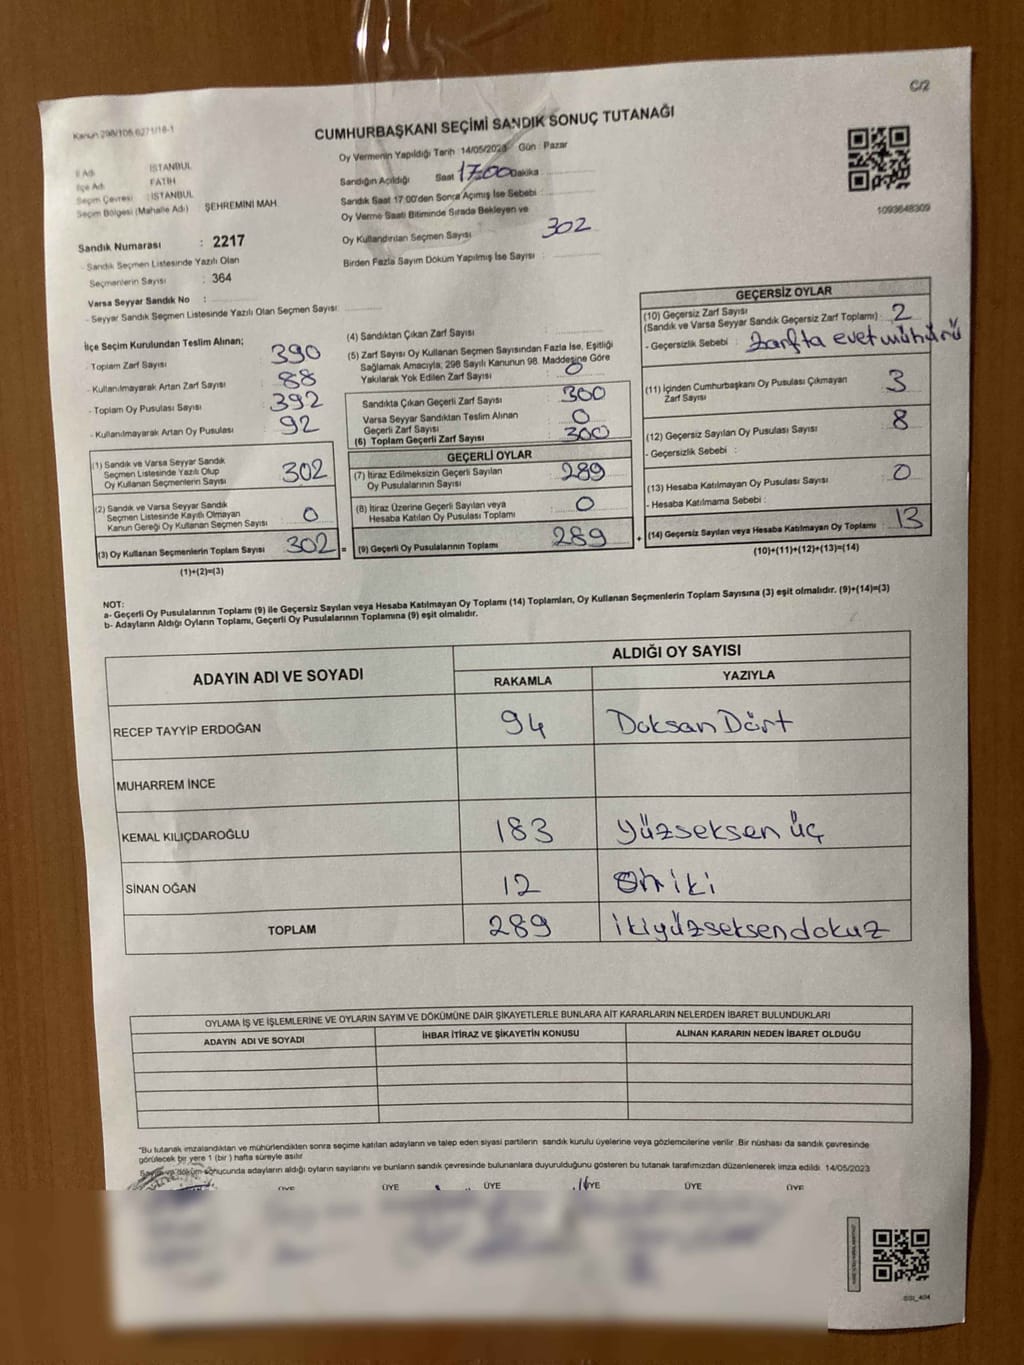 C/2
Kanun 298/105,6271/18-1
CUMHURBAŞKANI SEÇİMİ SANDIK SONUÇ TUTANAĞI
İl Adı İSTANBUL
İlçe Adı FATİH
Seçim Çevresi : İSTANBUL
Seçim Bölgesi (Mahalle Adı) ŞEHREMİNİ MAH.
Sandık Numarası : 2217
- Sandık Seçmen Listesinde Yazılı Olan
Seçmenlerin Sayısı : 364
Varsa Seyyar Sandık No :
- Seyyar Sandık Seçmen Listesinde Yazılı Olan Seçmen Sayısı
Oy Vermenin Yapıldığı Tarih 14/05/2023 Gün : Pazar
Sandığın Açıldığı Saat 17:00 Dakika
Sandık Saat 17:00'den Sonra Açımış İse Sebebi :
Oy Verme Saati Bitiminde Sırada Bekleyen ve
Oy Kullandırılan Seçmen Sayısı 302
Birden Fazla Sayım Döküm Yapılmış İse Sayısı :
1093648309
İlçe Seçim Kurulundan Teslim Alınan;
- Toplam Zarf Sayısı : 390
- Kullanılmayarak Artan Zarf Sayısı : 88
- Toplam Oy Pusulası Sayısı : 392
- Kullanılmayarak Artan Oy Pusulası : 92
(1) Sandık ve Varsa Seyyar Sandık
Seçmen Listesinde Yazılı Olup
Oy Kullanan Seçmenlerin Sayısı 302
(2) Sandık ve Varsa Seyyar Sandık
Seçmen Listesinde Kayıtlı Olmayan
Kanun Gereği Oy Kullanan Seçmen Sayısı 0
(3) Oy Kullanan Seçmenlerin Toplam Sayısı 302 =
(1)+(2)=(3)
(4) Sandıktan Çıkan Zarf Sayısı
(5) Zarf Sayısı Oy Kullanan Seçmen Sayısından Fazla İse, Eşitliği
Sağlamak Amacıyla, 298 Sayılı Kanunun 98. Maddesine Göre
Yakılarak Yok Edilen Zarf Sayısı 0
Sandıkta Çıkan Geçerli Zarf Sayısı 300
Varsa Seyyar Sandıktan Teslim Alınan
Geçerli Zarf Sayısı 0
(6) Toplam Geçerli Zarf Sayısı 300
GEÇERLİ OYLAR
(7) İtiraz Edilmeksizin Geçerli Sayılan
Oy Pusulalarının Sayısı 289
(8) İtiraz Üzerine Geçerli Sayılan veya
Hesaba Katılan Oy Pusulası Toplamı 0
(9) Geçerli Oy Pusulalarının Toplamı 289 +
GEÇERSİZ OYLAR
(10) Geçersiz Zarf Sayısı
(Sandık ve Varsa Seyyar Sandık Geçersiz Zarf Toplamı) 2
- Geçersizlik Sebebi : Zarfta evet mühürü
(11) İçinden Cumhurbaşkanı Oy Pusulası Çıkmayan
Zarf Sayısı 3
(12) Geçersiz Sayılan Oy Pusulası Sayısı : 8
- Geçersizlik Sebebi :
(13) Hesaba Katılmayan Oy Pusulası Sayısı : 0
- Hesaba Katılmama Sebebi :
(14) Geçersiz Sayılan veya Hesaba Katılmayan Oy Toplamı : 13
(10)+(11)+(12)+(13)=(14)
NOT:
a- Geçerli Oy Pusulalarının Toplamı (9) ile Geçersiz Sayılan veya Hesaba Katılmayan Oy Toplamı (14) Toplamları, Oy Kullanan Seçmenlerin Toplam Sayısına (3) eşit olmalıdır. (9)+(14)=(3)
b- Adayların Aldığı Oyların Toplamı, Geçerli Oy Pusulalarının Toplamına (9) eşit olmalıdır.
ADAYIN ADI VE SOYADI ALDIĞI OY SAYISI
RAKAMLA YAZIYLA
RECEP TAYYİP ERDOĞAN 94 Doksan Dört
MUHARREM İNCE
KEMAL KILIÇDAROĞLU 183 Yüzseksen üç
SİNAN OĞAN 12 Oniki
TOPLAM 289 İkiyüzseksendokuz
OYLAMA İŞ VE İŞLEMLERİNE VE OYLARIN SAYIM VE DÖKÜMÜNE DAİR ŞİKAYETLERLE BUNLARA AİT KARARLARIN NELERDEN İBARET BULUNDUKLARI
ADAYIN ADI VE SOYADI İHBAR İTİRAZ VE ŞİKAYETİN KONUSU ALINAN KARARIN NEDEN İBARET OLDUĞU
"Bu tutanak imzalandıktan ve mühürlendikten sonra seçime katılan adayların ve talep eden siyasi partilerin sandık kurulu üyelerine veya gözlemcilerine verilir. Bir nüshası da sandık çevresinde
görülecek bir yere 1 (bir) hafta süreyle asılır.
Sayım ve döküm sonucunda adayların aldığı oyların sayılarını ve bunların sandık çevresinde bulunanlara duyurulduğunu gösteren bu tutanak tarafımızdan düzenlenerek imza edildi. 14/05/2023
ÜYE ÜYE ÜYE ÜYE ÜYE ÜYE